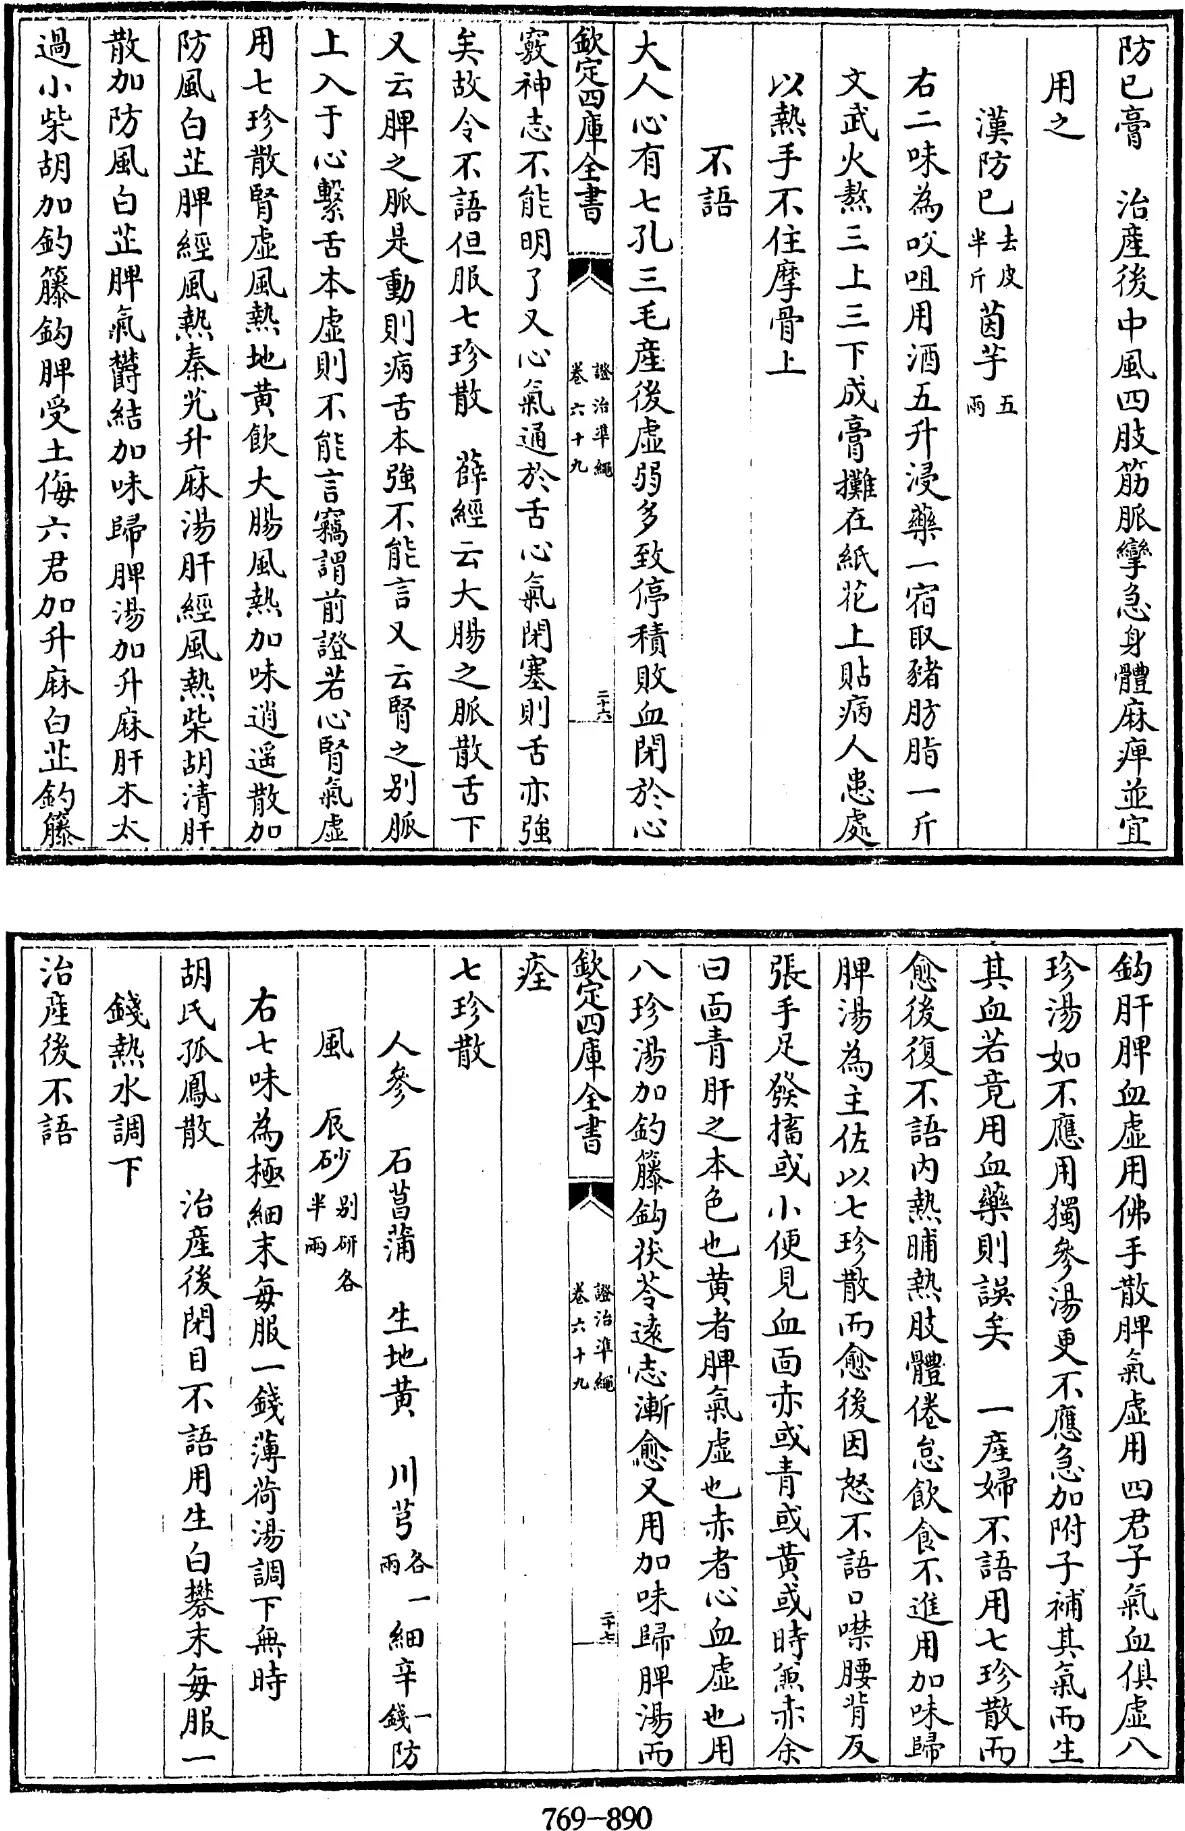 防已膏　治產後中風四肢筋脈攣急身體麻痺並宜
用之
漢防已去皮半斤茵芋五兩
右二味為㕮咀用酒五升浸藥一宿取豬肪脂一斤
文武火熬三上三下成膏攤在紙花上貼病人患處
以熱手不住摩骨上
不語
大人心有七孔三毛產後虛弱多致停積敗血閉於心
欽定四庫全書　證治準繩卷六十九　二十六
竅神志不能明了又心氣通於舌心氣閉塞則舌亦強
矣故令不語但服七珍散　薛經云大腸之脈散舌下
又云脾之脈是動則病舌本強不能言又云腎之別脈
上入于心繫舌本虛則不能言竊謂前證若心腎氣虛
用七珍散腎虛風熱地黃飲大腸風熱加味逍遥散加
防風白芷脾經風熱秦艽升麻湯肝經風熱柴胡清肝
散加防風白芷脾氣欝結加味歸脾湯加升麻肝木太
過小柴胡加釣籐鈎脾受土侮六君加升麻白芷釣籐
鈎肝脾血虛用佛手散脾氣虛用四君子氣血俱虛八
珍湯如不應用獨參湯更不應急加附子補其氣而生
其血若竟用血藥則誤矣　一產婦不語用七珍散而
愈後復不語內熱晡熱肢體倦怠飲食不進用加味歸
脾湯為主佐以七珍散而愈後因怒不語口噤腰背反
張手足發搐或小便見血面赤或青或黃或時兼赤余
曰面青肝之本色也黃者脾氣虛也赤者心血虛也用
八珍湯加釣籐鈎茯苓遠志漸愈又用加味歸脾湯而
欽定四庫全書　證治準繩卷六十九　二十七
痊
七珍散
人參　石菖蒲　生地黃　川芎各一兩　細辛一錢防
風　辰砂别研各半兩
右七味為極細末每服一錢薄荷湯調下無時
胡氏孤鳳散　治產後閉目不語用生白礬末每服一
錢熱水調下
治產後不語
769-890